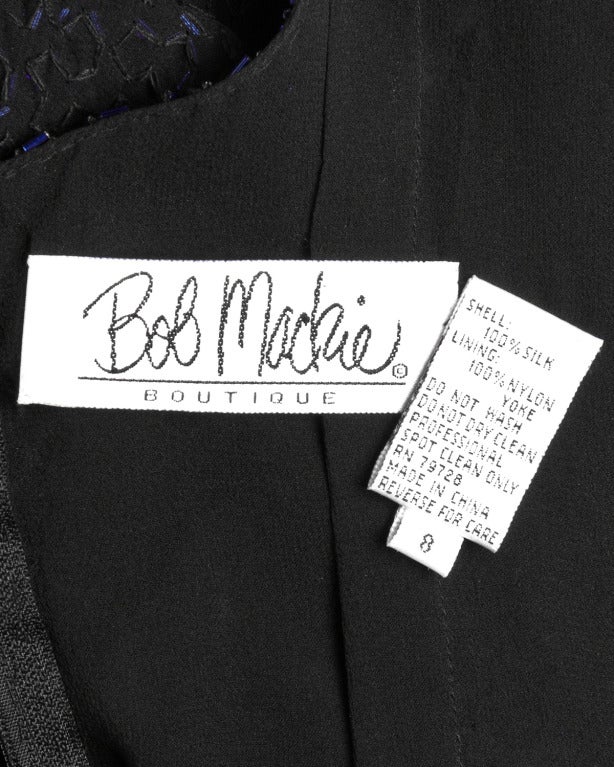 Bob Mackie ©
BOUTIQUE
SHELL:
100% SILK
LINING:
100% NYLON
YOKE
DO NOT WASH
DO NOT DRY CLEAN
PROFESSIONAL
SPOT CLEAN ONLY
RN 79728
MADE IN CHINA
REVERSE FOR CARE
8